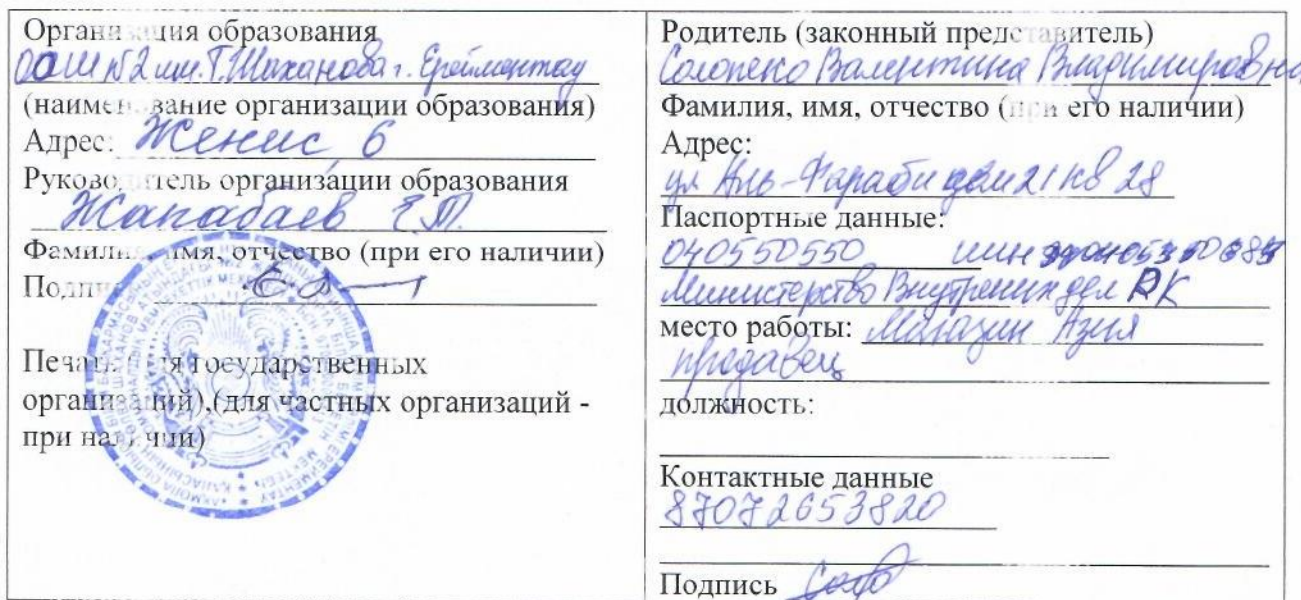 Организация образования
ООШ №2 им. Т.Шаханова г. Ерейментау
(наименование организации образования)
Адрес: Женис 6
Руководитель организации образования
Жанабаев Е.Т.
Фамилия, имя, отчество (при его наличии)
Подпись
Печать (для государственных
организаций),(для частных организаций -
при наличии)
Родитель (законный представитель)
Солопеко Валентина Владимировна
Фамилия, имя, отчество (при его наличии)
Адрес:
ул Аль-Фараби дом 21 кв 28
Паспортные данные:
040550550 ИИН
Министерство Внутрених дел РК
место работы: Магазин Азия
продавец
должность:
Контактные данные
87072653820
Подпись